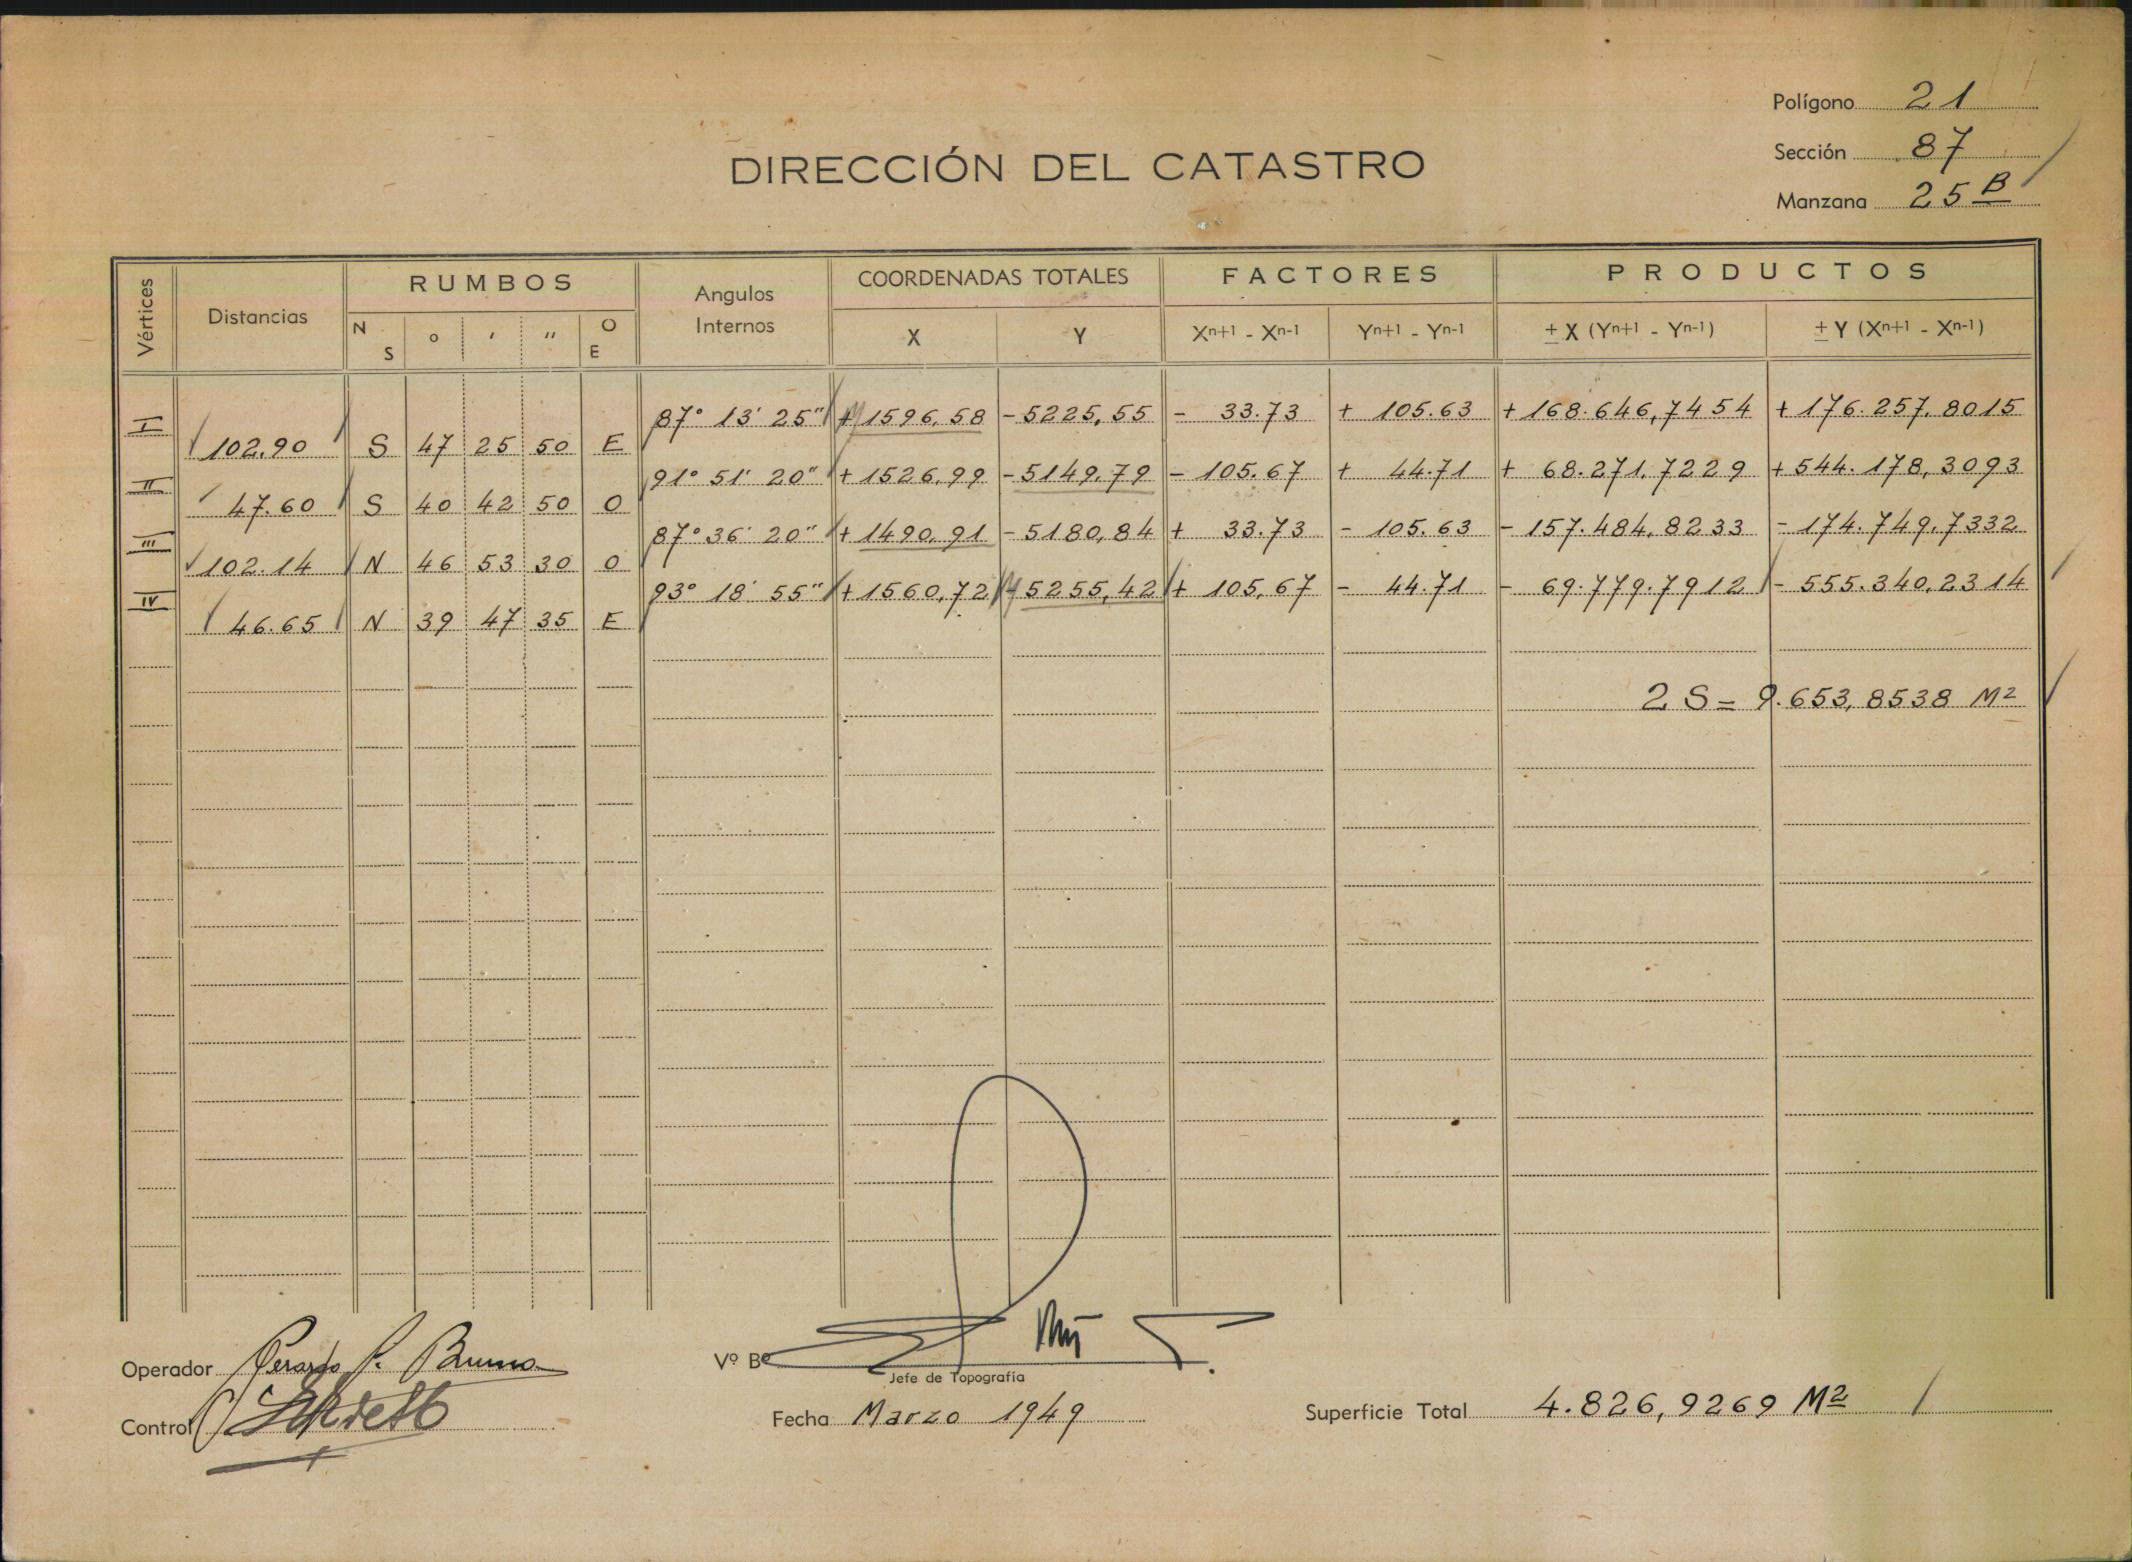 Polígono 21
Sección 87
DIRECCIÓN DEL CATASTRO
Manzana 25 B
Vértices
Distancias
RUMBOS
N S
° ' "
O E
Angulos Internos
COORDENADAS TOTALES
X Y
FACTORES
Xn+1 - Xn-1 Yn+1 - Yn-1
PRODUCTOS
± X (Yn+1 - Yn-1) ± Y (Xn+1 - Xn-1)
I 87° 13' 25" + 1596,58 - 5225,55 - 33.73 + 105.63 + 168.646,7454 + 176.257,8015
102.90 S 47 25 50 E
II 91° 51' 20" + 1526,99 - 5149,79 - 105.67 + 44.71 + 68.271,7229 + 544.178,3093
47.60 S 40 42 50 O
III 87° 36' 20" + 1490,91 - 5180,84 + 33.73 - 105.63 - 157.484,8233 - 174.749,7332
102.14 N 46 53 30 O
IV 93° 18' 55" + 1560,72 - 5255,42 + 105,67 - 44.71 - 69.779.7912 - 555.340,2314
46.65 N 39 47 35 E
2 S = 9.653,8538 M2
Operador Gerardo P. Bruno
Vº Bº
Jefe de Topografía
Control
Fecha Marzo 1949
Superficie Total 4.826,9269 M2